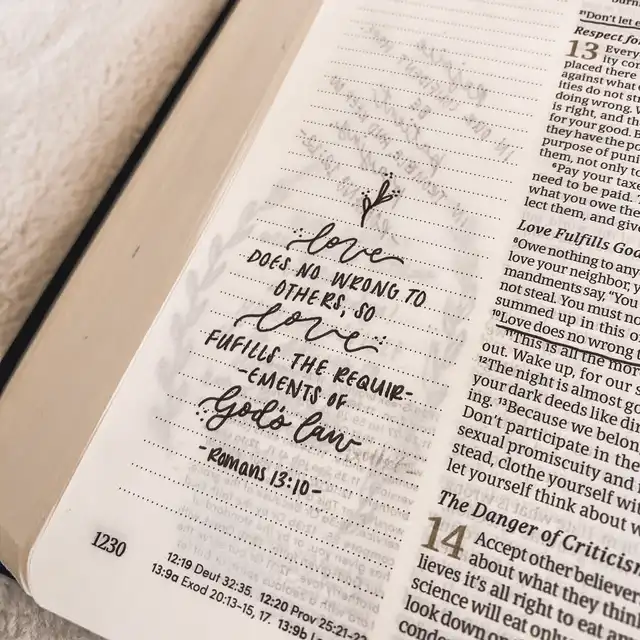 love
DOES NO WRONG TO
OTHERS, SO
love
FUFILLS THE REQUIR-
-EMENTS OF
God's law
-Romans 13:10-
1230
12:19 Deut 32:35. 12:20 Prov 25:21-22
13:9a Exod 20:13-15, 17. 13:9b
21Don't let
Respect for
13 Every
ity
placed there
against what
ities do not
doing wrong.
is right, and
for your good.
they have the
purpose of
them, not only to
6Pay your
need to be paid.
what you owe
lect them, and
Love Fulfills God
8Owe nothing to any
love your neighbor,
mandments say, "You
not steal. You must
summed up in this
10Love does no wrong
11This is all the more
out. Wake up, for our
12The night is almost
your dark deeds like
ing. 13Because we belong
Don't participate in the
sexual promiscuity and
stead, clothe yourself
let yourself think about
The Danger of Criticism
14 Accept other believer
about what they
lieves it's all right to eat
science will eat
look down